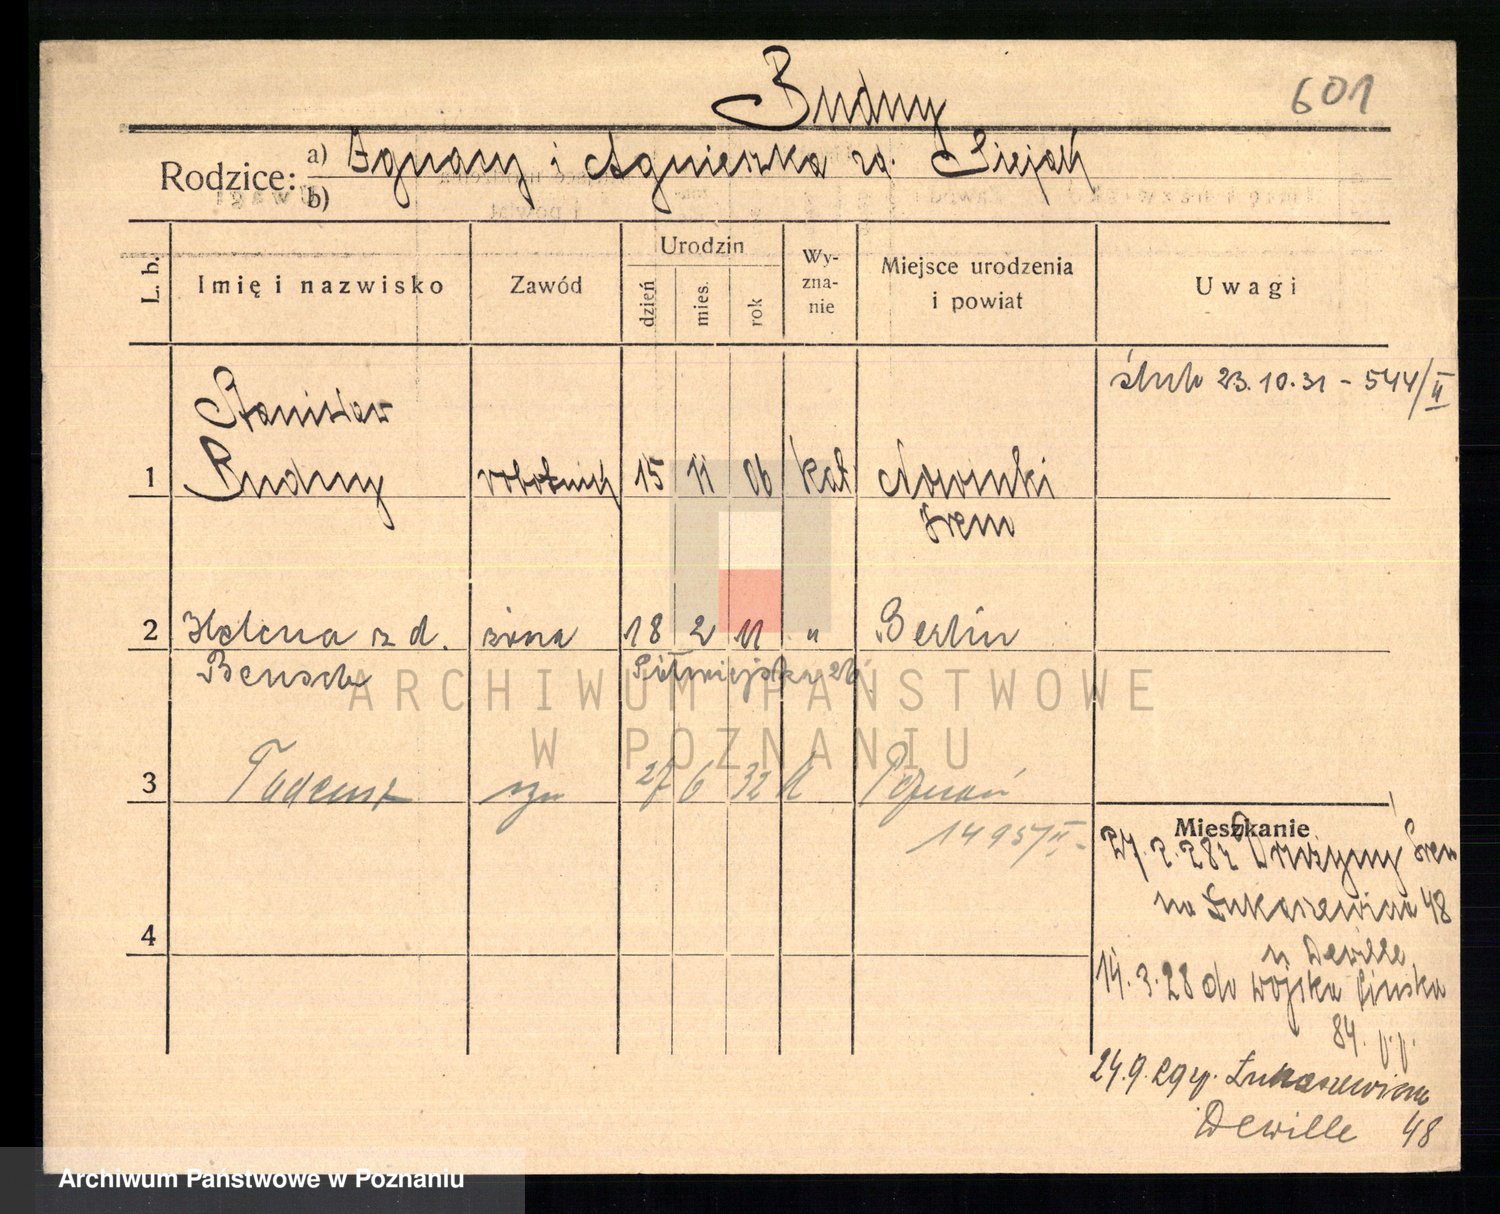 Budny
601
Rodzice:
a) Ignacy i Agnieszka zd.
b)
L. b.
Imię i nazwisko
Zawód
Urodzin
dzień
mies.
rok
Wy-
zna-
nie
Miejsce urodzenia
i powiat
Uwagi
ślub 23.10.31 - 544/II
Stanisław
1 Budny robotnik 15 11 06 kat Nowinki
Śrem
2 Helena z d. żona 18 2 11 " Berlin
Bensch Półwiejska 26
ARCHIWUM PAŃSTWOWE
W POZNANIU
3 Tadeusz syn 27 6 32 k Poznań
1495/II.
4
Mieszkanie
27.2.28 z Drużyny Śrem
na Łukaszewicza 48
u Dewille
14.3.28 do wojska Pińska
84. p.p.
24.9.29 p. Łukaszewicza
Dewille 48
Archiwum Państwowe w Poznaniu